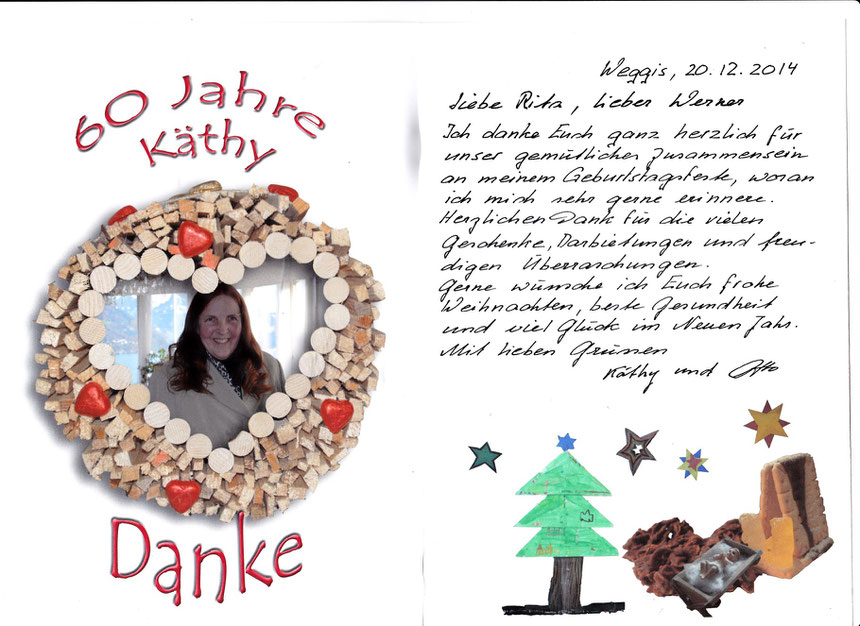 60 Jahre
Käthy
Danke
Weggis, 20.12.2014
Liebe Rita, lieber Werner
Ich danke Euch ganz herzlich für
unser gemütliches Zusammensein
an meinem Geburtstagsfeste, woran
ich mich sehr gerne erinnere.
Herzlichen Dank für die vielen
Geschenke, Darbietungen und freu-
digen Überraschungen.
Gerne wünsche ich Euch frohe
Weihnachten, beste Gesundheit
und viel Glück im Neuen Jahr.
Mit lieben Grüssen
Käthy und Otto